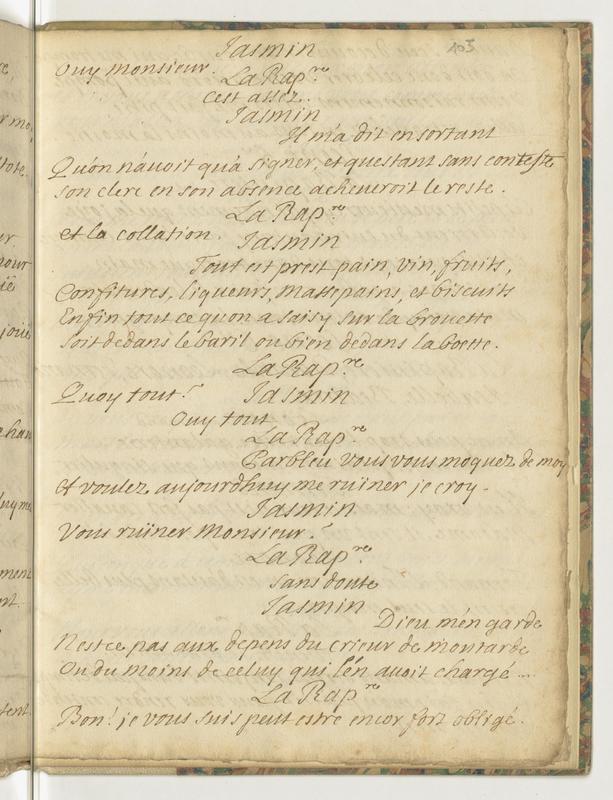 103
Jasmin
Ouy monsieur.
La Rap.re
C'est assez.
Jasmin
Il m'a dit en sortant
Qu'on n'auoit qu'a signer, et qu'estant sans conteste
son clerc en son absence acheueroit le reste.
La Rap.re
et la collation.
Jasmin
Tout est prest pain, vin, fruits,
Confitures, liqueurs, Massepains, et biscuits
Enfin tout ce qu'on a saisy sur la brouette
Soit dedans le baril ou bien dedans la boette.
La Rap.re
Quoy tout?
Jasmin
Ouy tout
La Rap.re
Parbleu vous vous moquez de moy
Et voulez aujourd'huy me ruiner je croy.
Jasmin
Vous ruïner Monsieur?
La Rap.re
Sans doute
Jasmin
Dieu m'en garde
N'est ce pas aux depens du crieur de moutarde
Ou du moins de celuy qui l'en auoit chargé...
La Rap.re
Bon! je vous suis peut estre encor fort obligé.